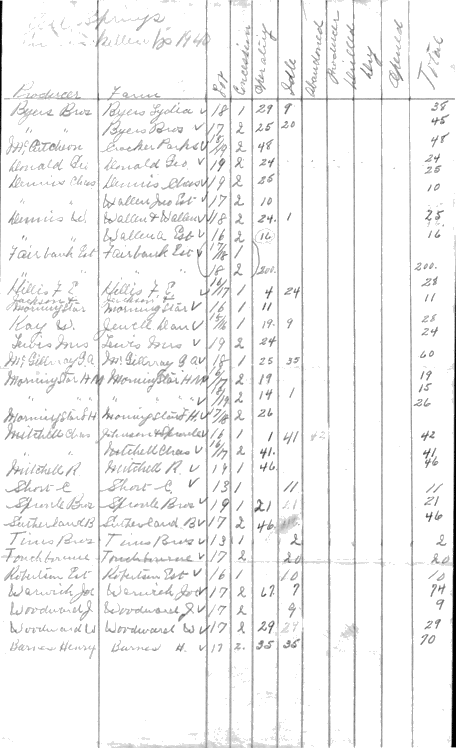 Springs
1946
Producer Farm Lot Concession Operating Idle Abandoned Producer Drilled Dry Opened Total
Byers Bros Byers Lydia v 18 1 29 9 38
" " Byers Bros v 17 2 25 20 45
Crocker Parks v 2 48 48
Donald Geo Donald Geo, v 19 2 24 24
Dennis Chas Dennis Chas v 19 2 25 25
" Wallen Jno Est v 17 2 10 10
Dennis W. Wallen & Wallen v 18 2 24. 1 25
" Wallen A Est v 16 2 16 16
Fairbank Est Fairbank Est v 17/18 1
" " 18 2 200. 200.
Hillis F E Hillis F. E v 16/17 1 4 24 28
Jackson &
Morning Star Morning Star v 16 1 11 11
Kay W. Jewell Dan v 15/16 1 19. 9 28
Lewis Wms Lewis Wms v 19 2 24 24
McGillvray G A McGillvray G A v 18 1 25 35 60
Morning Star H M Morning Star H M v 16/17 2 19 19
" " " v 2 14 1 15
Morning Star F H Morning Star F. H v 17/18 2 26 26
Mitchell Chas Johnson & Sproule v 16 1 1 41 42
" " Mitchell Chas v 16/17 2 41. 41
Mitchell R. Mitchell R. v 19 1 46. 46
Short C Short C. v 13 1 11 11
Sproule Bros Sproule Bros v 19 1 21 21
Sutherland B Sutherland B v 17 2 46. 46
Tims Bros Tims Bros v 13 1 2 2
Touchbourne Touchbourne v 17 2 20 20
Robertson Est Robertson Est v 16 1 10 10
Warwick Jos Warwick Jos v 17 2 67. 7 74
Woodward J Woodward J v 17 2 9 9
Woodward W Woodward W v 17 2 29 29 29
Barnes Henry Barnes H. v 17 2. 35 35 70